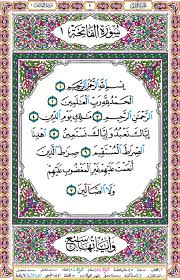 سُورَةُ الفَاتِحَةِ
بِسْمِ اللَّهِ الرَّحْمَٰنِ الرَّحِيمِ ١
الْحَمْدُ لِلَّهِ رَبِّ الْعَالَمِينَ ٢
الرَّحْمَٰنِ الرَّحِيمِ ٣ مَالِكِ يَوْمِ الدِّينِ ٤
إِيَّاكَ نَعْبُدُ وَإِيَّاكَ نَسْتَعِينُ ٥ اهْدِنَا
الصِّرَاطَ الْمُسْتَقِيمَ ٦ صِرَاطَ الَّذِينَ
أَنْعَمْتَ عَلَيْهِمْ غَيْرِ الْمَغْضُوبِ عَلَيْهِمْ
وَلَا الضَّالِّينَ ٧
وآياتها سبع